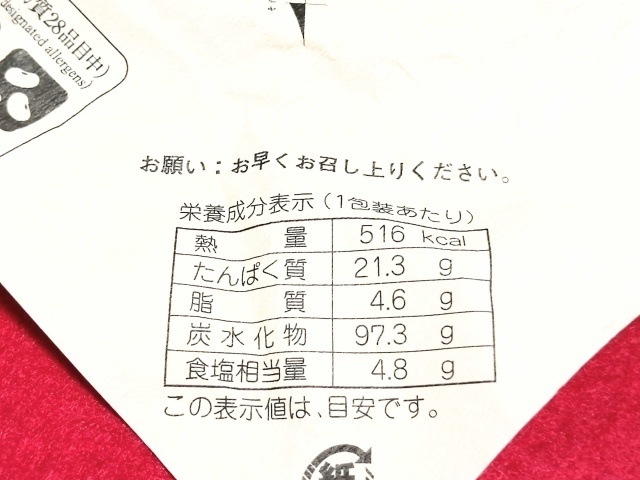 質28品目中)
designated allergens)
お願い：お早くお召し上りください。
栄養成分表示（1包装あたり）
熱量 516 kcal
たんぱく質 21.3 g
脂質 4.6 g
炭水化物 97.3 g
食塩相当量 4.8 g
この表示値は、目安です。
紙